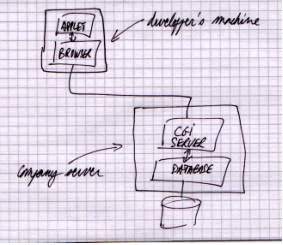 APPLET
developer's machine
BROWSER
CGI
SERVER
Company server
DATABASE